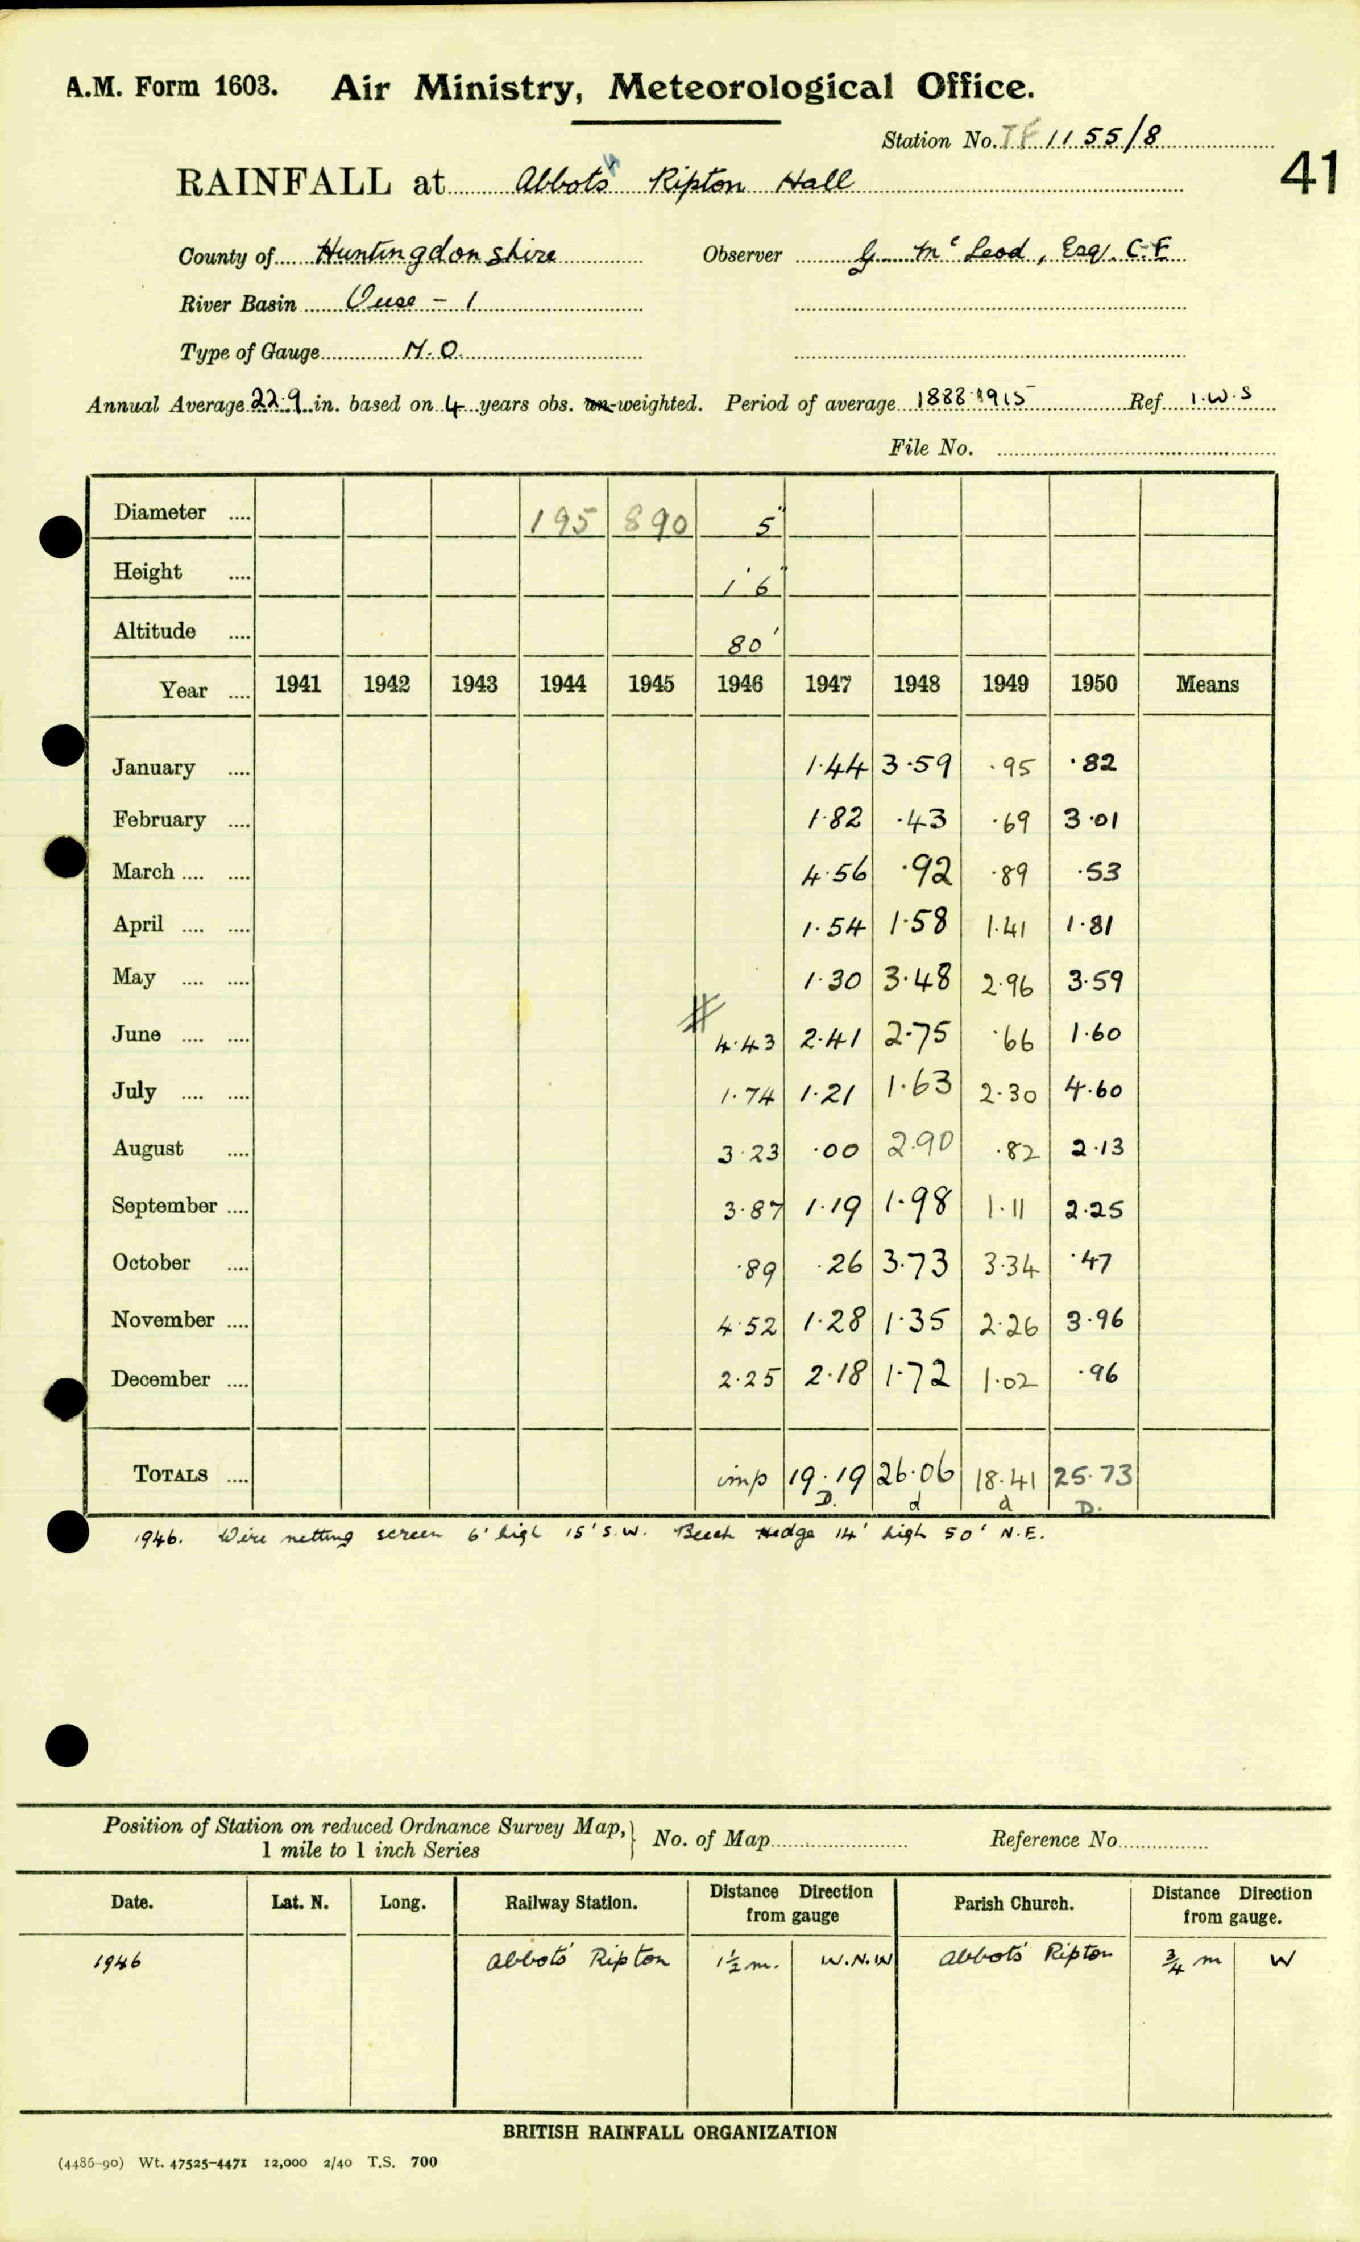 A.M. Form 1603. Air Ministry, Meteorological Office.
Station No. TF 1155/8
41
RAINFALL at Abbots Ripton Hall
County of Huntingdonshire Observer G. McLeod, Esq. C.E
River Basin Ouse - 1
Type of Gauge M.O.
Annual Average 22.9 in. based on 4 years obs. un-weighted. Period of average 1888 1915 Ref 1.W.S
File No.
Diameter .... 195 890 5"
Height .... 1' 6"
Altitude .... 80'
Year .... 1941 1942 1943 1944 1945 1946 1947 1948 1949 1950 Means
January .... 1.44 3.59 .95 .82
February .... 1.82 .43 .69 3.01
March .... .... 4.56 .92 .89 .53
April .... .... 1.54 1.58 1.41 1.81
May .... .... 1.30 3.48 2.96 3.59
June .... .... 4.43 2.41 2.75 .66 1.60
July .... .... 1.74 1.21 1.63 2.30 4.60
August .... 3.23 .00 2.90 .82 2.13
September .... 3.87 1.19 1.98 1.11 2.25
October .... .89 .26 3.73 3.34 .47
November .... 4.52 1.28 1.35 2.26 3.96
December .... 2.25 2.18 1.72 1.02 .96
TOTALS .... imp 19.19 26.06 18.41 25.73
D. d d D.
1946. Wire netting screen 6' high 15' S.W. Beech Hedge 14' high 50' N.E.
Position of Station on reduced Ordnance Survey Map, 1 mile to 1 inch Series } No. of Map Reference No.
Date. Lat. N. Long. Railway Station. Distance Direction from gauge Parish Church. Distance Direction from gauge.
1946 Abbots' Ripton 1½ m. W.N.W Abbots' Ripton ¾ m W
BRITISH RAINFALL ORGANIZATION
(4486-90) Wt. 47525-4471 12,000 2/40 T.S. 700